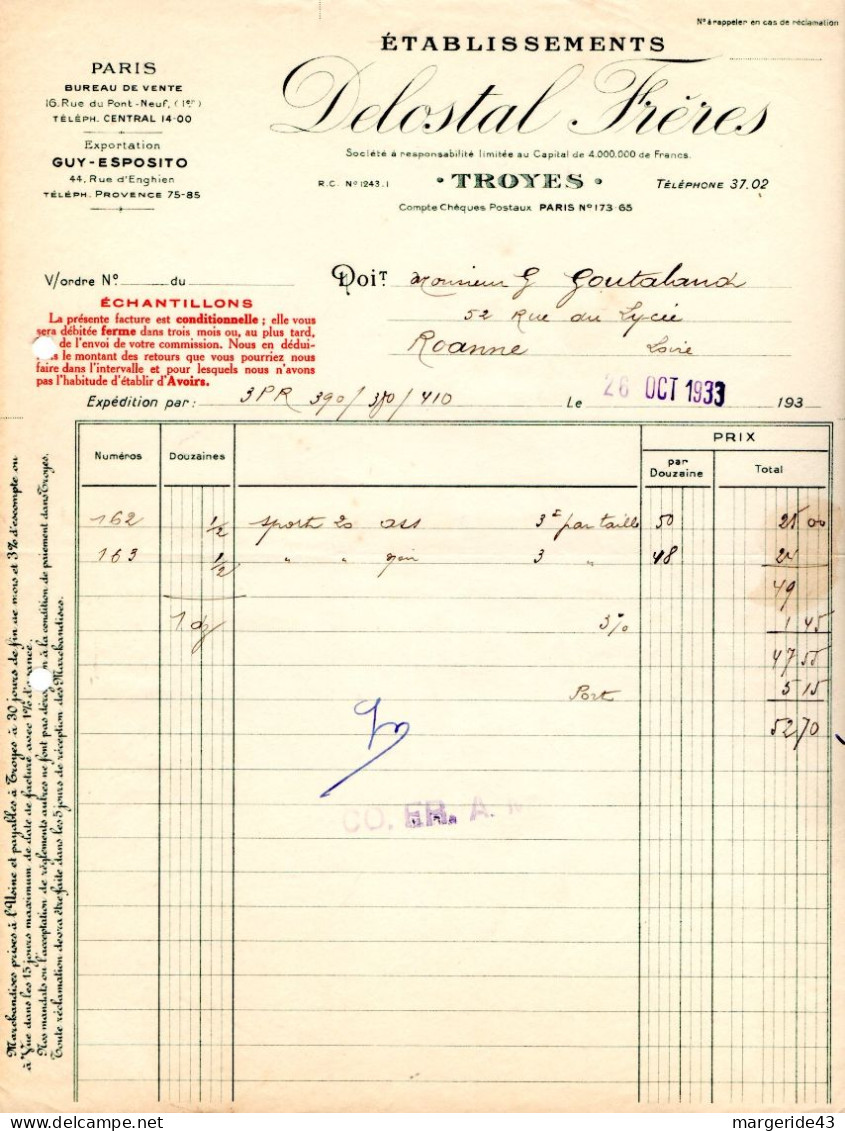 Nº à rappeler en cas de réclamation
PARIS
BUREAU DE VENTE
16, Rue du Pont-Neuf, (1er)
TÉLÉPH. CENTRAL 14-00
Exportation
GUY-ESPOSITO
44, Rue d'Enghien
TÉLÉPH. PROVENCE 75-85
ÉTABLISSEMENTS
Delostal Frères
Société à responsabilité limitée au Capital de 4.000.000 de Francs.
R.C. Nº 1243.1 • TROYES • TÉLÉPHONE 37.02
Compte Chèques Postaux PARIS Nº 173-65
V/ordre Nº du
Doit Monsieur G Goutaland
52 Rue du Lycée
Roanne Loire
ÉCHANTILLONS
La présente facture est conditionnelle ; elle vous
sera débitée ferme dans trois mois ou, au plus tard,
de l'envoi de votre commission. Nous en dédui-
s le montant des retours que vous pourriez nous
faire dans l'intervalle et pour lesquels nous n'avons
pas l'habitude d'établir d'Avoirs.
Expédition par : 3PR 390/380/410 Le 26 OCT 1933 193
Numéros Douzaines PRIX
par Douzaine Total
162 1/2 sport 20 ass 3 par taille 50 25 00
163 1/2 " " noir 3 " 48 24
49
1 dz 3% 1 45
47 55
Port 5 15
52 70
CO. ER. A.
Marchandises prises à l'Usine et payables à Troyes à 30 jours de fin de mois et 3% d'escompte ou
à Vue dans les 15 jours maximum de date de facture avec 1% d'avance.
Nos mandats ou l'acceptation de règlements autres ne font pas déro à la condition de paiement dans Troyes.
Toute réclamation devra être faite dans les 5 jours de réception des Marchandises.
margeride43